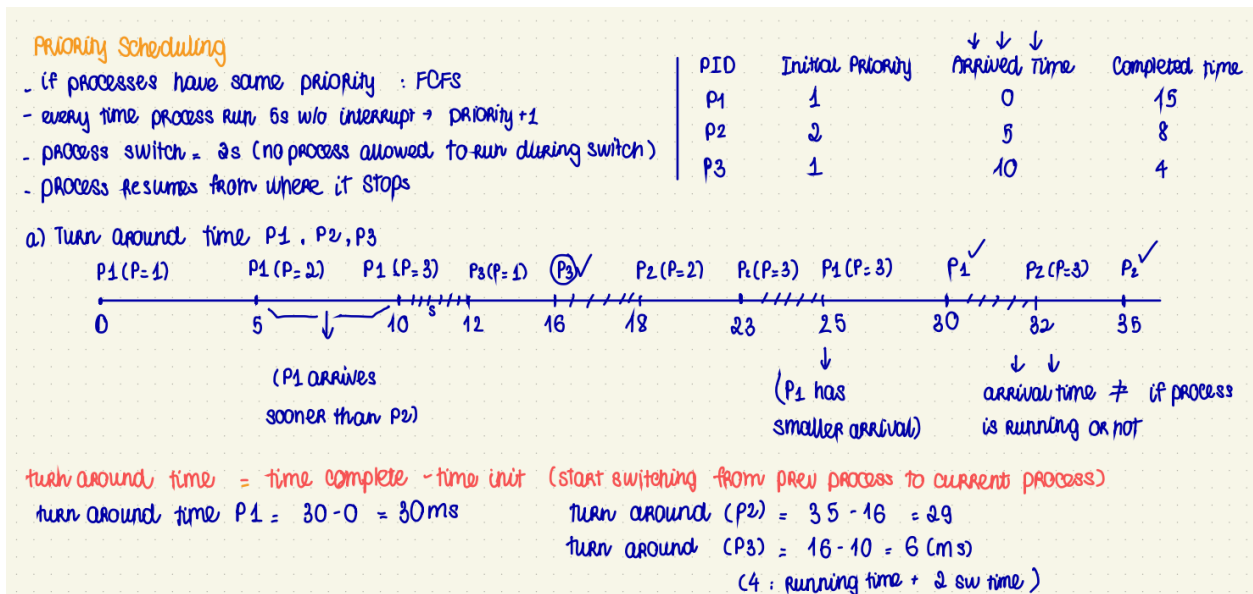 Priority Scheduling
- if processes have same priority : FCFS
- every time process run 5s w/o interrupt → priority +1
- process switch = 2s (no process allowed to run during switch)
- process resumes from where it stops
PID Initial Priority Arrived Time Completed time
P1 1 0 15
P2 2 5 8
P3 1 10 4
a) Turn around time P1, P2, P3
P1(P=1) P1(P=2) P1(P=3) P3(P=1) P3✓ P2(P=2) P2(P=3) P1(P=3) P1✓ P2(P=3) P2✓
s
0 5 10 12 16 18 23 25 30 32 35
(P1 arrives
sooner than P2)
(P1 has
smaller arrival)
arrival time ≠ if process
is running or not
turn around time = time complete - time init (start switching from prev process to current process)
turn around time P1 = 30-0 = 30ms
turn around (P2) = 35-16 = 29
turn around (P3) = 16-10 = 6 (ms)
(4 : running time + 2 sw time)